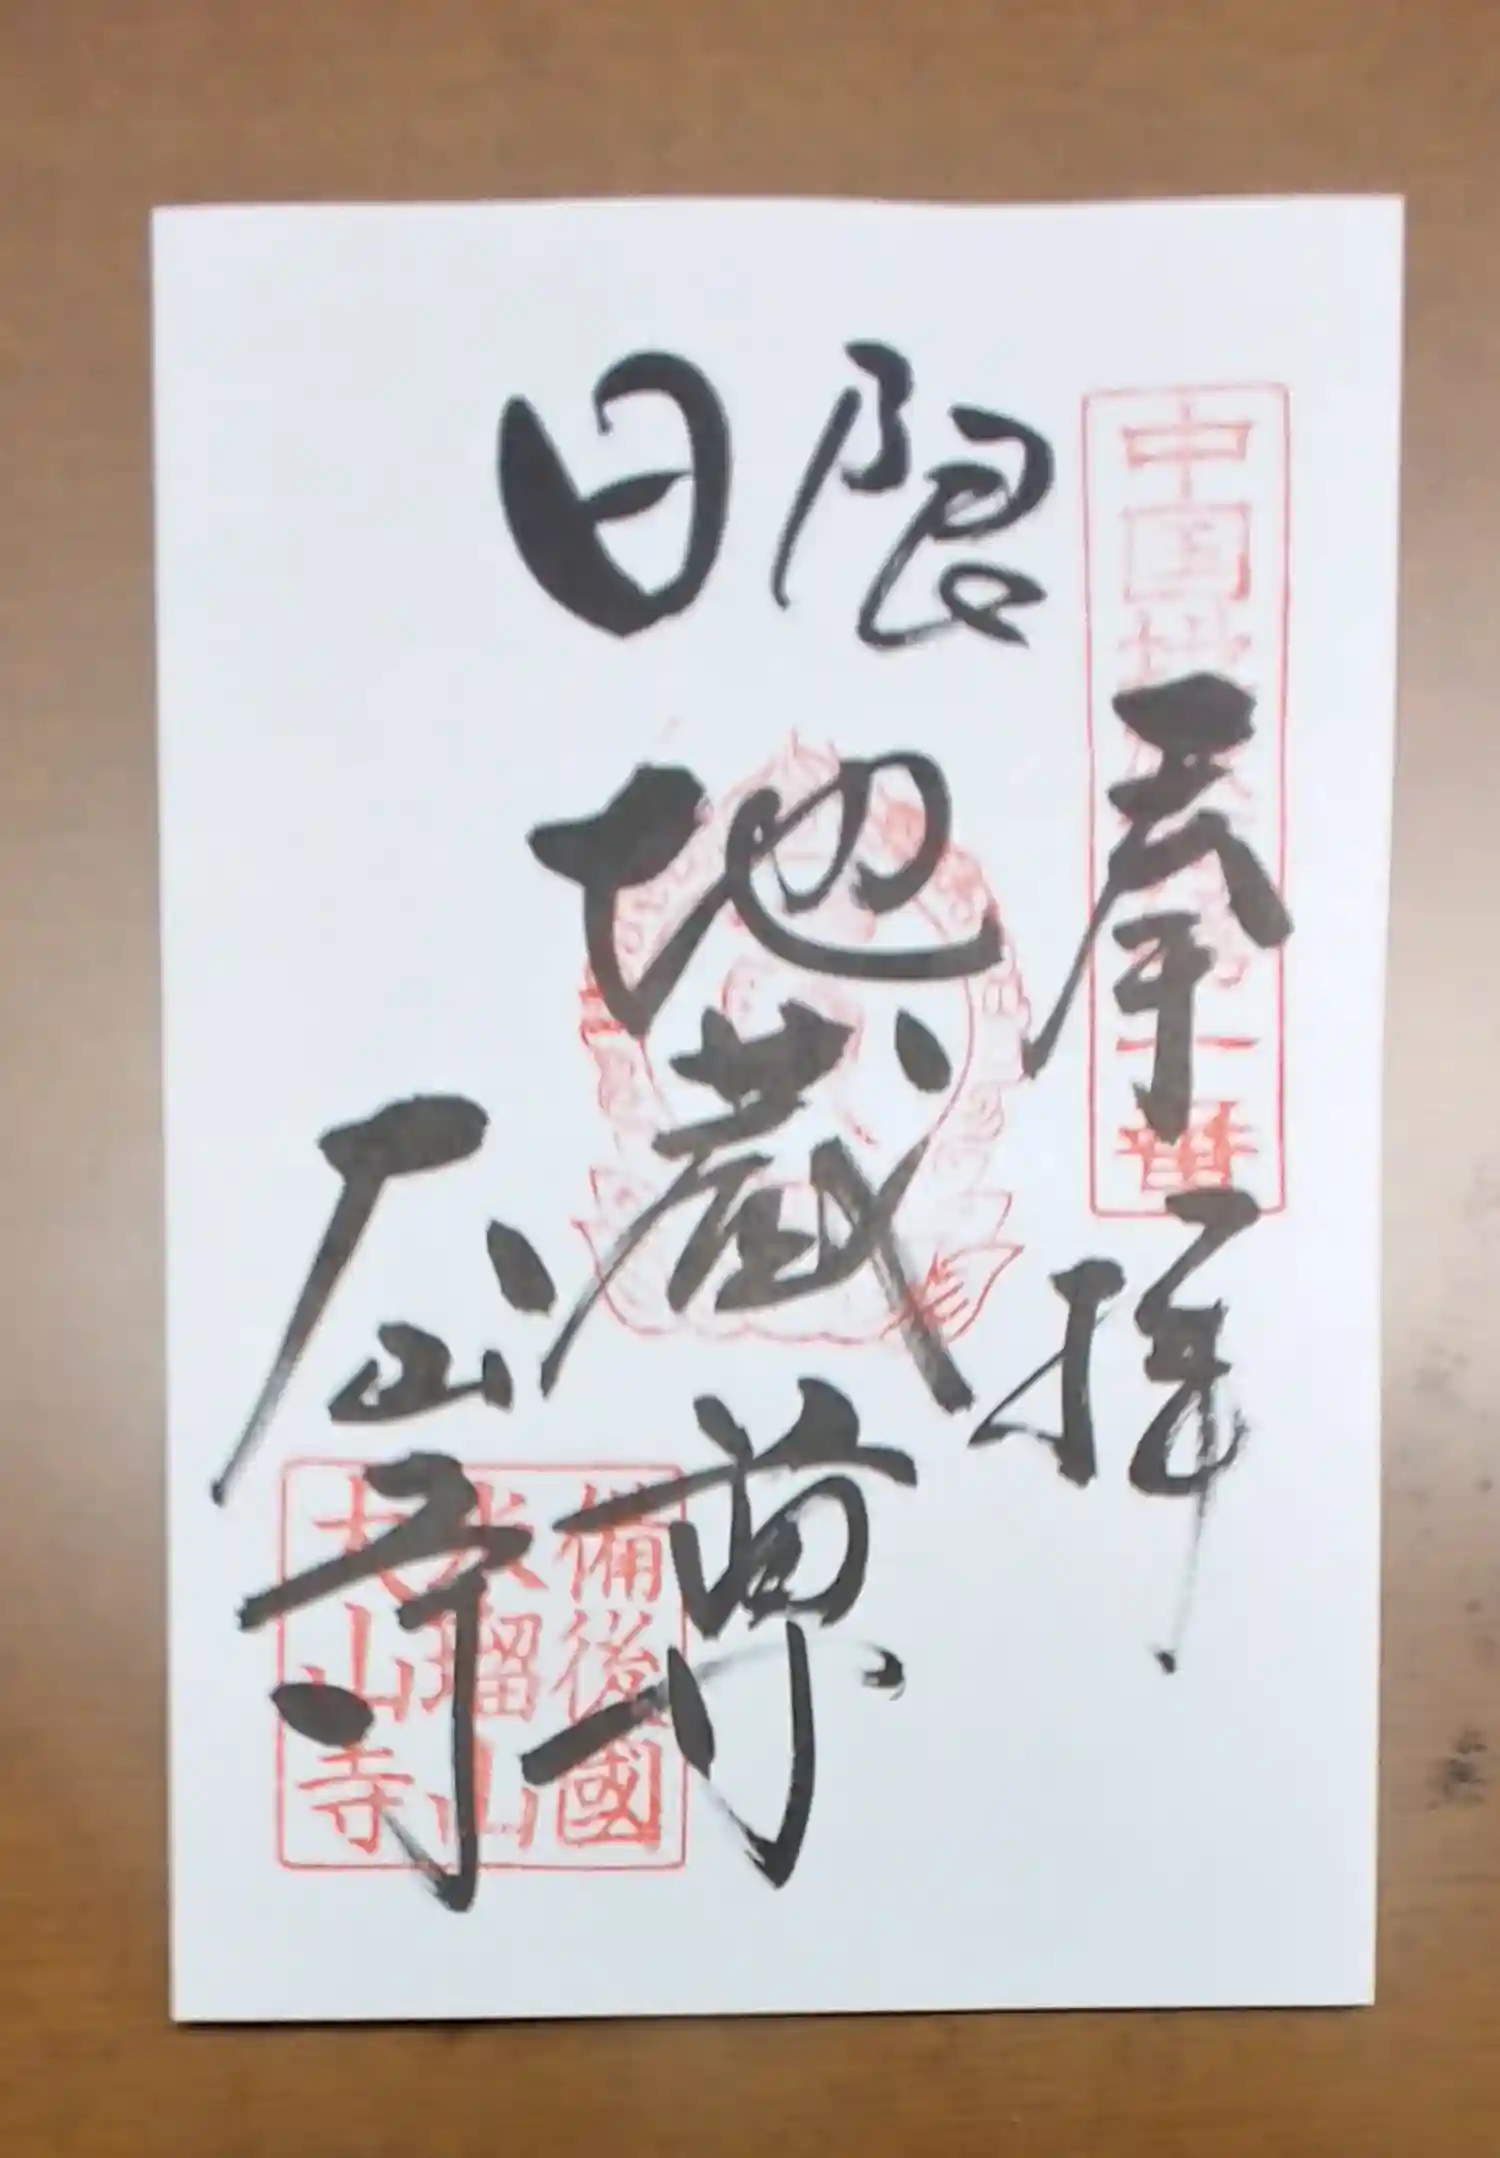 奉拝
中国地 一番
日限
地蔵尊
大山寺
備後國
瑠山
大山寺